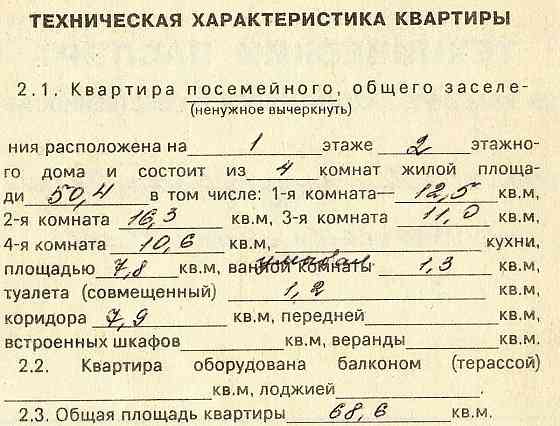 ТЕХНИЧЕСКАЯ ХАРАКТЕРИСТИКА КВАРТИРЫ
2.1. Квартира посемейного, общего заселе-
(ненужное вычеркнуть)
ния расположена на 1 этаже 2 этажно-
го дома и состоит из 4 комнат жилой площа-
ди 50,4 в том числе: 1-я комната— 12,5 кв.м,
2-я комната 16,3 кв.м, 3-я комната 11,0 кв.м,
4-я комната 10,6 кв.м, кухни,
площадью 7,8 кв.м, ванной комнаты 1,3 кв.м,
туалета (совмещенный) 1,2 кв.м,
коридора 7,9 кв.м, передней кв.м,
встроенных шкафов кв.м, веранды кв.м.
2.2. Квартира оборудована балконом (терассой)
кв.м, лоджией .
2.3. Общая площадь квартиры 68,6 кв.м.